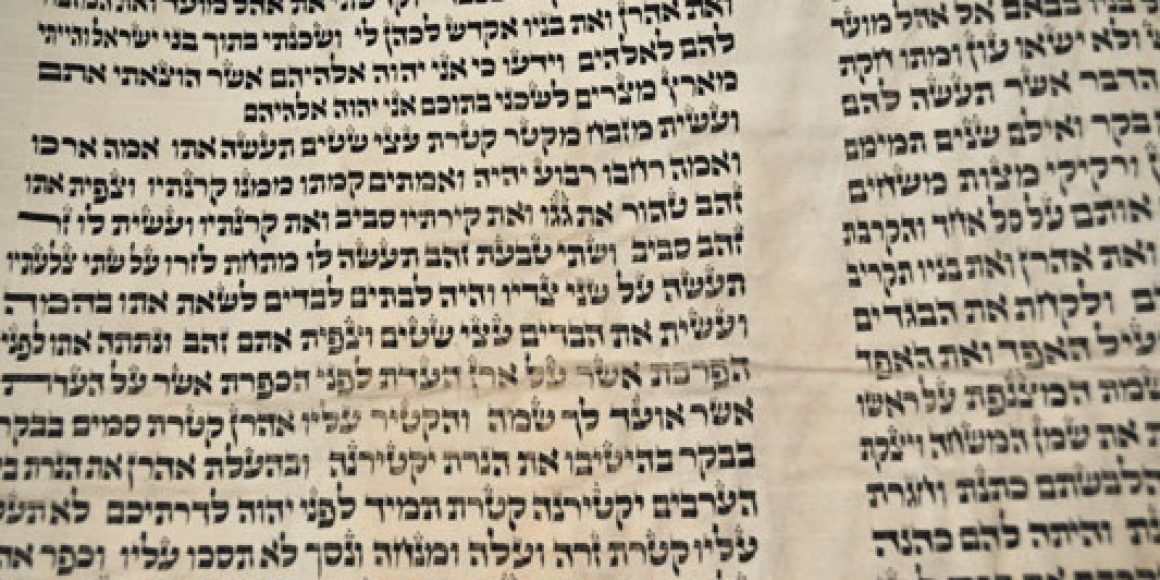 בניו בבאם אל אהל מועד
ולא ישאו עון ומתו חקת
הדבר אשר תעשה להם
בקר ואילם שנים תמימם
ורקיקי מצות משחים
אותם על סל אחד והקרבת
ואת אהרן ואת בניו תקריב
ולקחת את הבגדים
האפד ואת האפד
המצנפת על ראשו
את שמן המשחה ויצקת
הלבשתם כתנת וחגרת
והיתה להם כהנה
את אהל מועד ואת המזבח
ואת אהרן ואת בניו אקדש לכהן לי ושכנתי בתוך בני ישראל והייתי
להם לאלהים וידעו כי אני יהוה אלהיהם אשר הוצאתי אתם
מארץ מצרים לשכני בתוכם אני יהוה אלהיהם
ועשית מזבח מקטר קטרת עצי שטים תעשה אתו אמה ארכו
ואמה רחבו רבוע יהיה ואמתים קמתו ממנו קרנתיו וצפית אתו
זהב טהור את גגו ואת קירתיו סביב ואת קרנתיו ועשית לו זר
זהב סביב ושתי טבעת זהב תעשה לו מתחת לזרו על שתי צלעתיו
תעשה על שני צדיו והיה לבתים לבדים לשאת אתו בהמה
ועשית את הבדים עצי שטים וצפית אתם זהב ונתתה אתו לפני
הפרכת אשר על ארן העדת לפני הכפרת אשר על העדת
אשר אועד לך שמה והקטיר עליו אהרן קטרת סמים בבקר
בבקר בהיטיבו את הנרת יקטירנה ובהעלת אהרן את הנרת בין
הערבים יקטירנה קטרת תמיד לפני יהוה לדרתיכם לא תעלו
עליו קטרת זרה ועלה ומנחה ונסך לא תסכו עליו וכפר